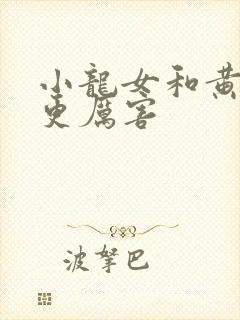 小龍女和黃
更厲害
波拏巴